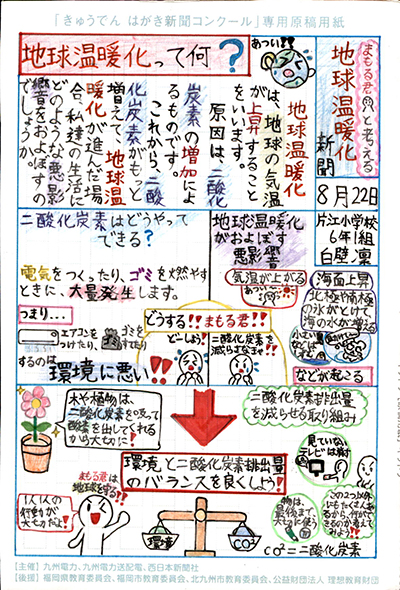 「きゅうでん はがき新聞コンクール」専用原稿用紙
まもる君と考える
地球温暖化
新聞
8月22日
片江小学校
6年1組
白壁 凜
地球温暖化って何?
あつい!!
地球温暖化
は、地球の気温
が上昇すること
をいいます。
原因は、二酸化
炭素の増加によ
るものです。
これから、二酸
化炭素がもっと
増えて、地球温
暖化が進んだ場
合、私達の生活に
どのような悪影
響をおよぼすの
でしょうか。
地球温暖化
がおよぼす
悪影響
気温が上がる
海面上昇
北極や南極
の氷がとけて、
海の水が増える
などが起こる
二酸化炭素はどうやって
できる?
電気をつくったり、ゴミを燃やす
ときに、大量発生します。
つまり...
エアコンを
つけたり、
ゴミを
するのは
環境に悪い!!
どうする!!まもる君!!
どーしよう!
二酸化炭素を
減らさなきゃ!!
木や植物は、
二酸化炭素を吸って
酸素を出してくれる
から大切に!
二酸化炭素排出量
を減らせる取り組み
見ていない
テレビは消す
物は、
最後まで
大切に使う
この2つ以外
にもたくさん
あるから、
できるのか考えて
みよう!
環境と二酸化炭素排出量
のバランスを良くしよう!
まもる君は
地球を守る!
1人1人の
行動が
大切だよ!
環境
CO²
CO²=二酸化炭素
【主催】九州電力、九州電力送配電、西日本新聞社
【後援】福岡県教育委員会、福岡市教育委員会、北九州市教育委員会、公益財団法人 理想教育財団